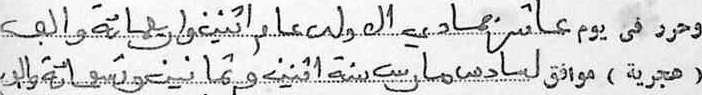 وحرر في يوم عاشر جمادي الاولى عام اثنين واربعمائة والف
( هجرية ) موافق لسادس مارس سنة اثنين وثمانين وتسعمائة والف